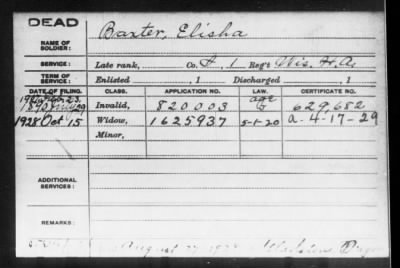 DEAD
NAME OF SOLDIER: Baxter, Elisha
SERVICE: Late rank, Co. 1 Reg't Wis. H. A.
TERM OF SERVICE: Enlisted , 1 Discharged , 1
DATE OF FILING. CLASS. APPLICATION NO. LAW. CERTIFICATE NO.
age
Invalid, 820003 629682
1928 Oct 15 Widow, 1625937 5-1-20 a-4-17-29
Minor,
ADDITIONAL SERVICES:
REMARKS:
August